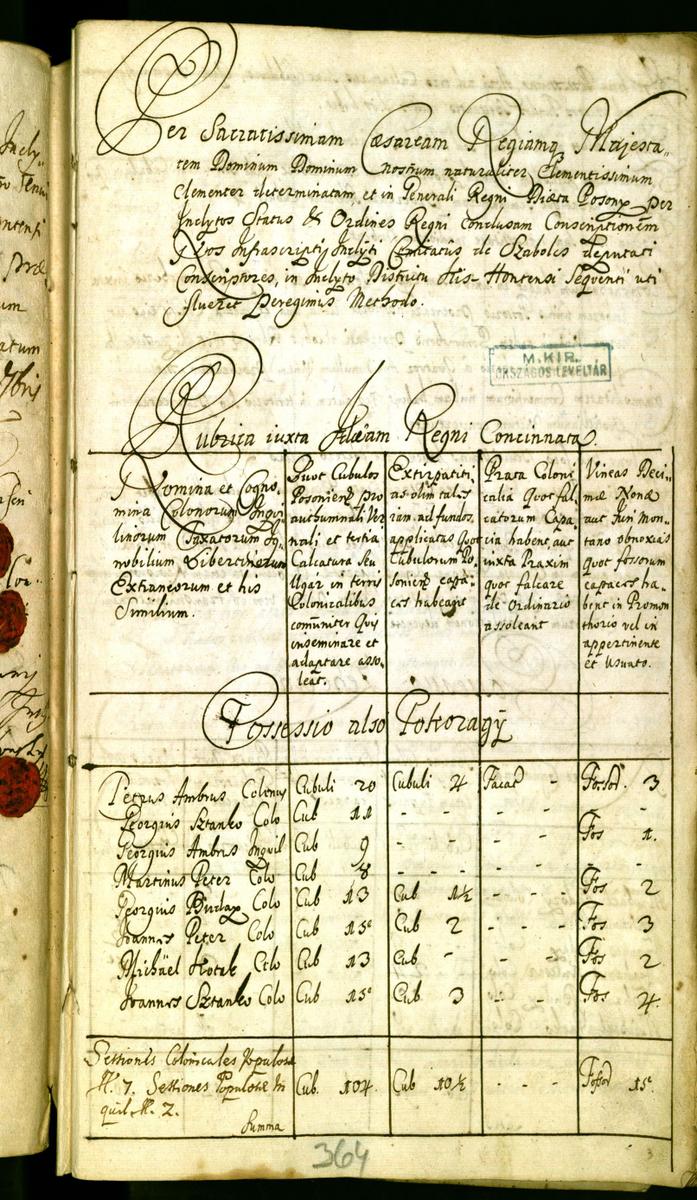 Per Sacratissimam Cæsaream Regiamq Majesta-
tem Dominum Dominum nostrum naturaliter Clementissimum
Clementer determinatam et in Generali Regni Diæta Poson per
Inclytos Status & Ordines Regni conclusam Conscriptionem
Nos Infrascripti Inclyti Comitatûs de Szabolcs deputati
Conscriptores, in Inclyto Districtu Kis-Hontensi sequenti uti
Peregimus Methodo.
M. KIR.
ORSZÁGOS LEVÉLTÁR
Rubrica iuxta Ideam Regni Concinnata.
Nomina et Cogno-
mina Colonorum Inqui
linorum Taxatorum Ig-
nobilium Libertinorum
Extraneorum et his
Similium.
Quot Cubulos
Posoniens pro
authumnali Ver
nali et tertia
Calcatura seu
Ugar in terris
Colonicalibus
comuniter Quis
inseminare et
adaptare asso-
leat.
Extirpatiti
as olim tales
iam ad fundos
applicatas Quot
Cubulorum Po-
soniens capa-
ces habeant
Prata Coloni
calia Quot fal-
catorum Capa
cia habent, aut
iuxta Praxim
quot falcare
de Ordinario
assoleant
Vineas Deci-
mæ Nonæ
aut Juri Mon-
tano obnoxias
quot fossorum
capaces ha-
bent in Promon
thorio vel in
appertinente
et Usuato.
Possessio alsó Pokoragÿ
Petrus Ambrus Colonus Cubuli 20 Cubuli 4 - 3
Georgius Sztanko Colo Cub 11 - - - - - -
Georgius Ambrus Inquil Cub 9 - - - - - Fos 1.
Martinus Peter Colo Cub 8 - - - - - -
Georgius Colo Cub 13 Cub 1½ - - - Fos 2
Joannes Peter Colo Cub 15 Cub 2 - - - Fos 3
Michäel Colo Cub 13 Cub - - - Fos 2
Joannes Sztanko Colo Cub 15 Cub 3 - - Fos 4.
Sessiones Colonicales Populosæ
N. 7. Sessiones Populosæ In
quil N. 2.
Summa
Cub. 104. Cub 10½ - - - Fossor 15
364